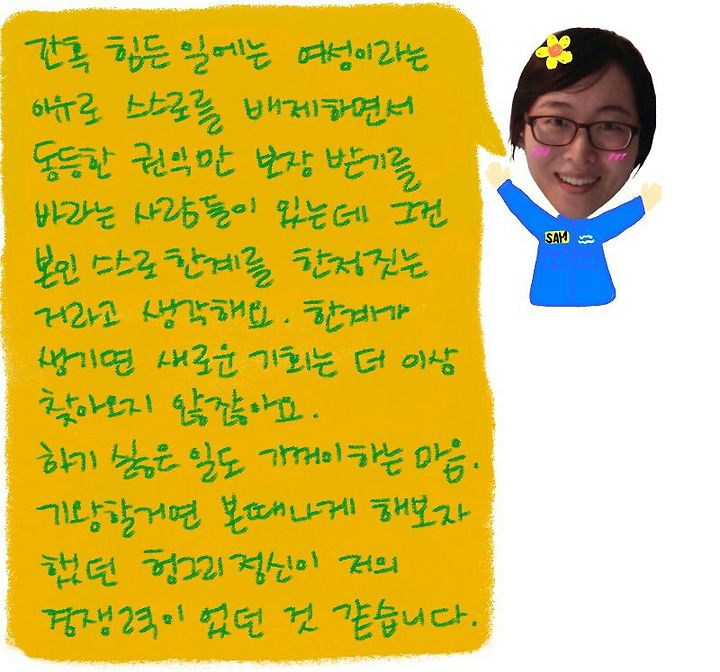 간혹 힘든 일에는 여성이라는
이유로 스스로를 배제하면서
동등한 권익만 보장 받기를
바라는 사람들이 있는데 그건
본인 스스로 한계를 한정짓는
거라고 생각해요. 한계가
생기면 새로운 기회는 더 이상
찾아오지 않잖아요.
하기 싫은 일도 기꺼이 하는 마음.
기왕할거면 본때나게 해보자
했던 헝그리 정신이 저의
경쟁력이 었던 것 같습니다.
SAM